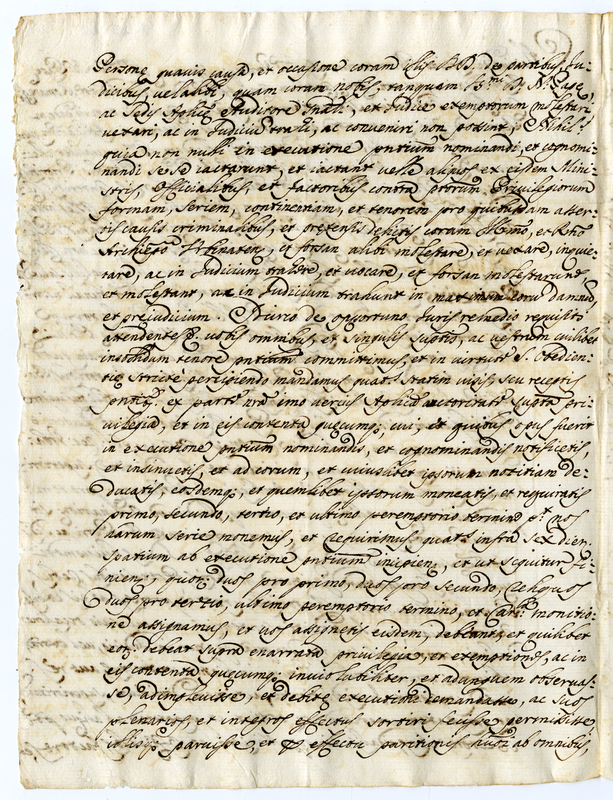 Personę quavis causa, et occasione coram ehis RR. de partibus Ju-
dicibus, velandi, quam coram nobis, tanquam S.mi D. N. Papę,
ac Sedis Aplicę Auditore trahi, et Judice exemptorum molestari
vexari, ac in Judicium trahi, ac conveniri non possint, Nihil.s
quia non nulli in executione pntium nominandi, et cognomi-
nandi se se iactarunt, et iactant velle aliquos ex eisdem Mini-
stris, Officialibus, et factoribus contra ptorum Privilegiorum
formam, seriem, continentiam, et tenorem pro quibusdam asser-
tis causis criminalibus, et pretensis debitis coram Illmo, et Rmo
Archiepo Urbinaten, et forsan alibi molestare, et vexare, inquie-
tare, ac in Judicium trahere, et vocare, et forsan molestarunt,
et molestant, ac in Judicium trahunt in maximum eoru damnu,
et prejudicium. Quare de opportuno Juris remedio requisiti
attendentes vobis omnibus, et singulis suptis, ac vestrum cuilibet
insolidum tenore pntium committimus, et in virtute S. Obedien-
tię stricte percipiendo mandamus quat.s statim visis, seu receptis
pntibq, ex parte nra imo verius Aplica auctoritate supta pri-
vilegia, et in eis contenta quęcumq, cui, et quibus opus fuerit
in executione pntium nominandis, et cognominandis notificetis
et insinuetis, et ad eorum, et cuiuslibet ipsorum notitiam de-
ducatis, eosdemq, et quemlibet ipsorum moneatis, et requiratis
primo, secundo, tertio, et ultimo peremptorio termino pt nos
harum serie monemus, et requirimus quat.s infra sex dier.
spatium ab executione pntium incipien, et ut sequitur fi-
nien, quor. duos pro primo, duos pro secundo, Reliquos
duos pro tertio, ultimo peremptorio termino, et Can.ca monitio-
ne assignamus, et vos assignetis eisdem, debeant, et quilibet
eor. debeat supra enarrata privilegia, et exemptiones, ac in
eis contenta quęcumq, inviolabiliter, et ad unguem observas-
se, adimplevisse, et debitę executione demandasse, ac suos
plenarios, et integros effectus sortiri fecisse, permisisse,
illisq, paruisse, et effectu paritionis huoi ab omnibus,